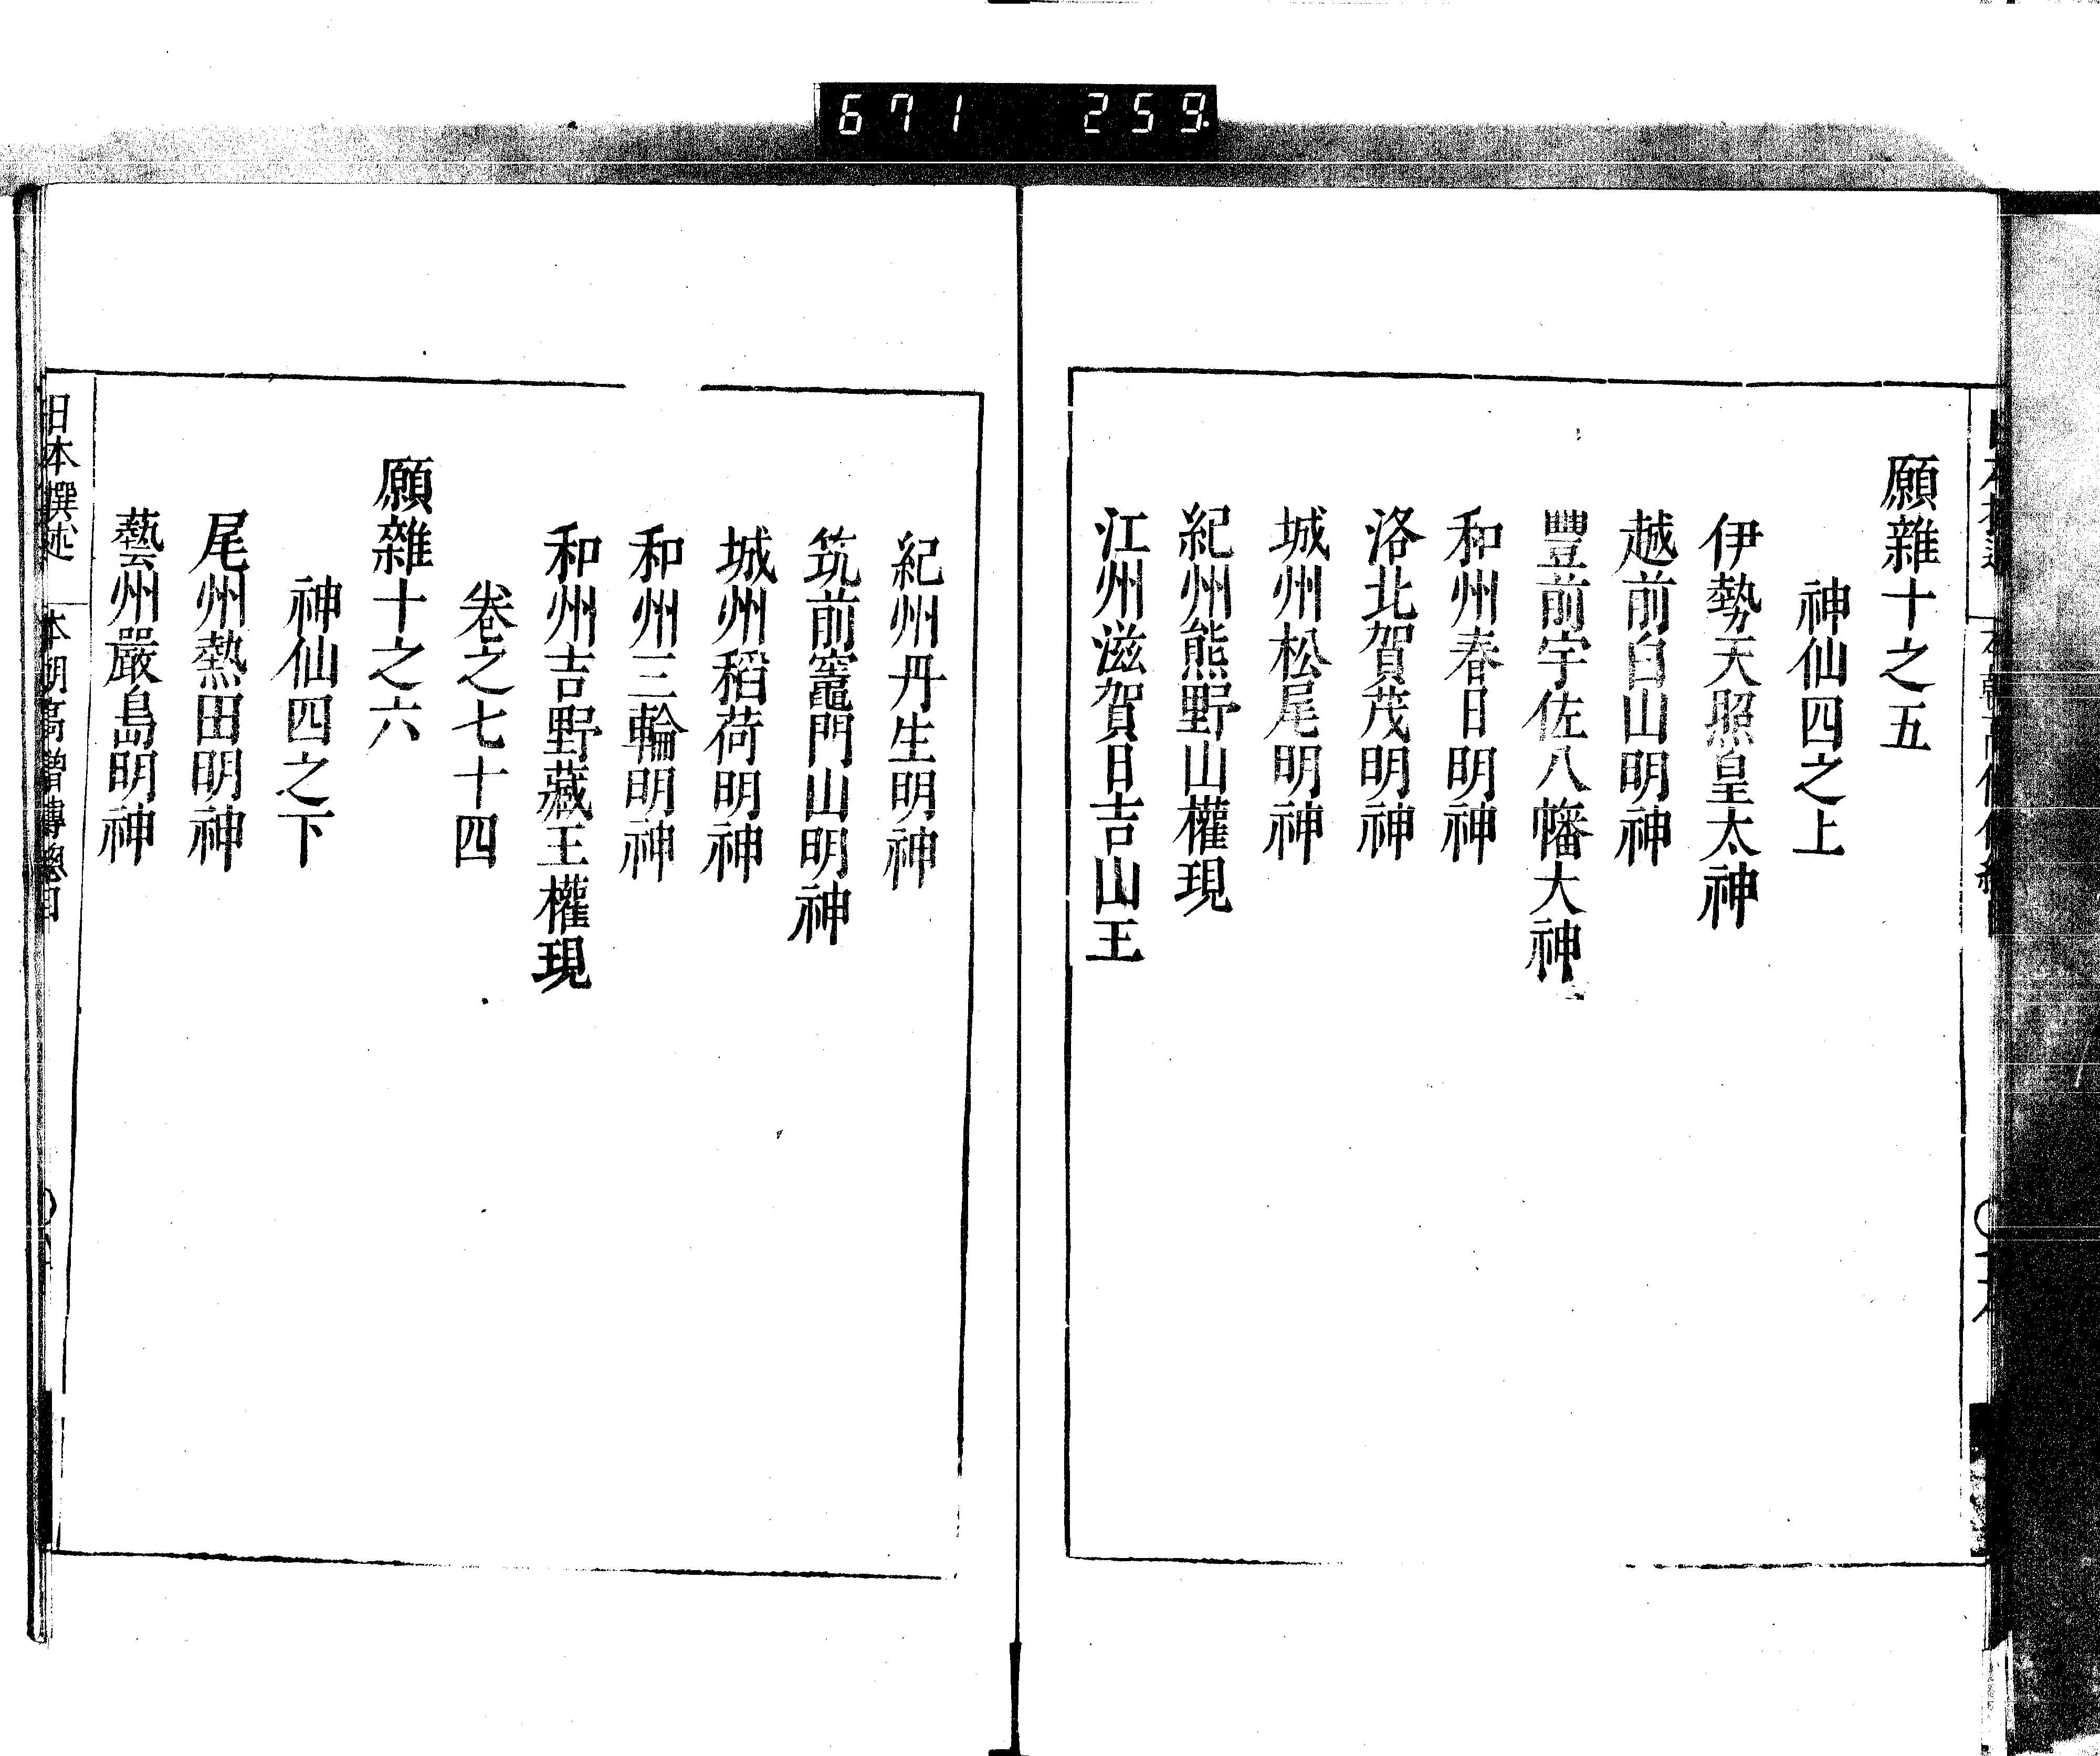 671 259
願雜十之五
神仙四之上
伊勢天照皇太神
越前白山明神
豐前宇佐八幡大神
和州春日明神
洛北賀茂明神
城州松尾明神
紀州熊野山權現
江州滋賀日吉山王
紀州丹生明神
筑前竈門山明神
城州稻荷明神
和州三輪明神
和州吉野藏王權現
卷之七十四
願雜十之六
神仙四之下
尾州熱田明神
藝州嚴島明神
日本撰述 本朝高僧傳總目